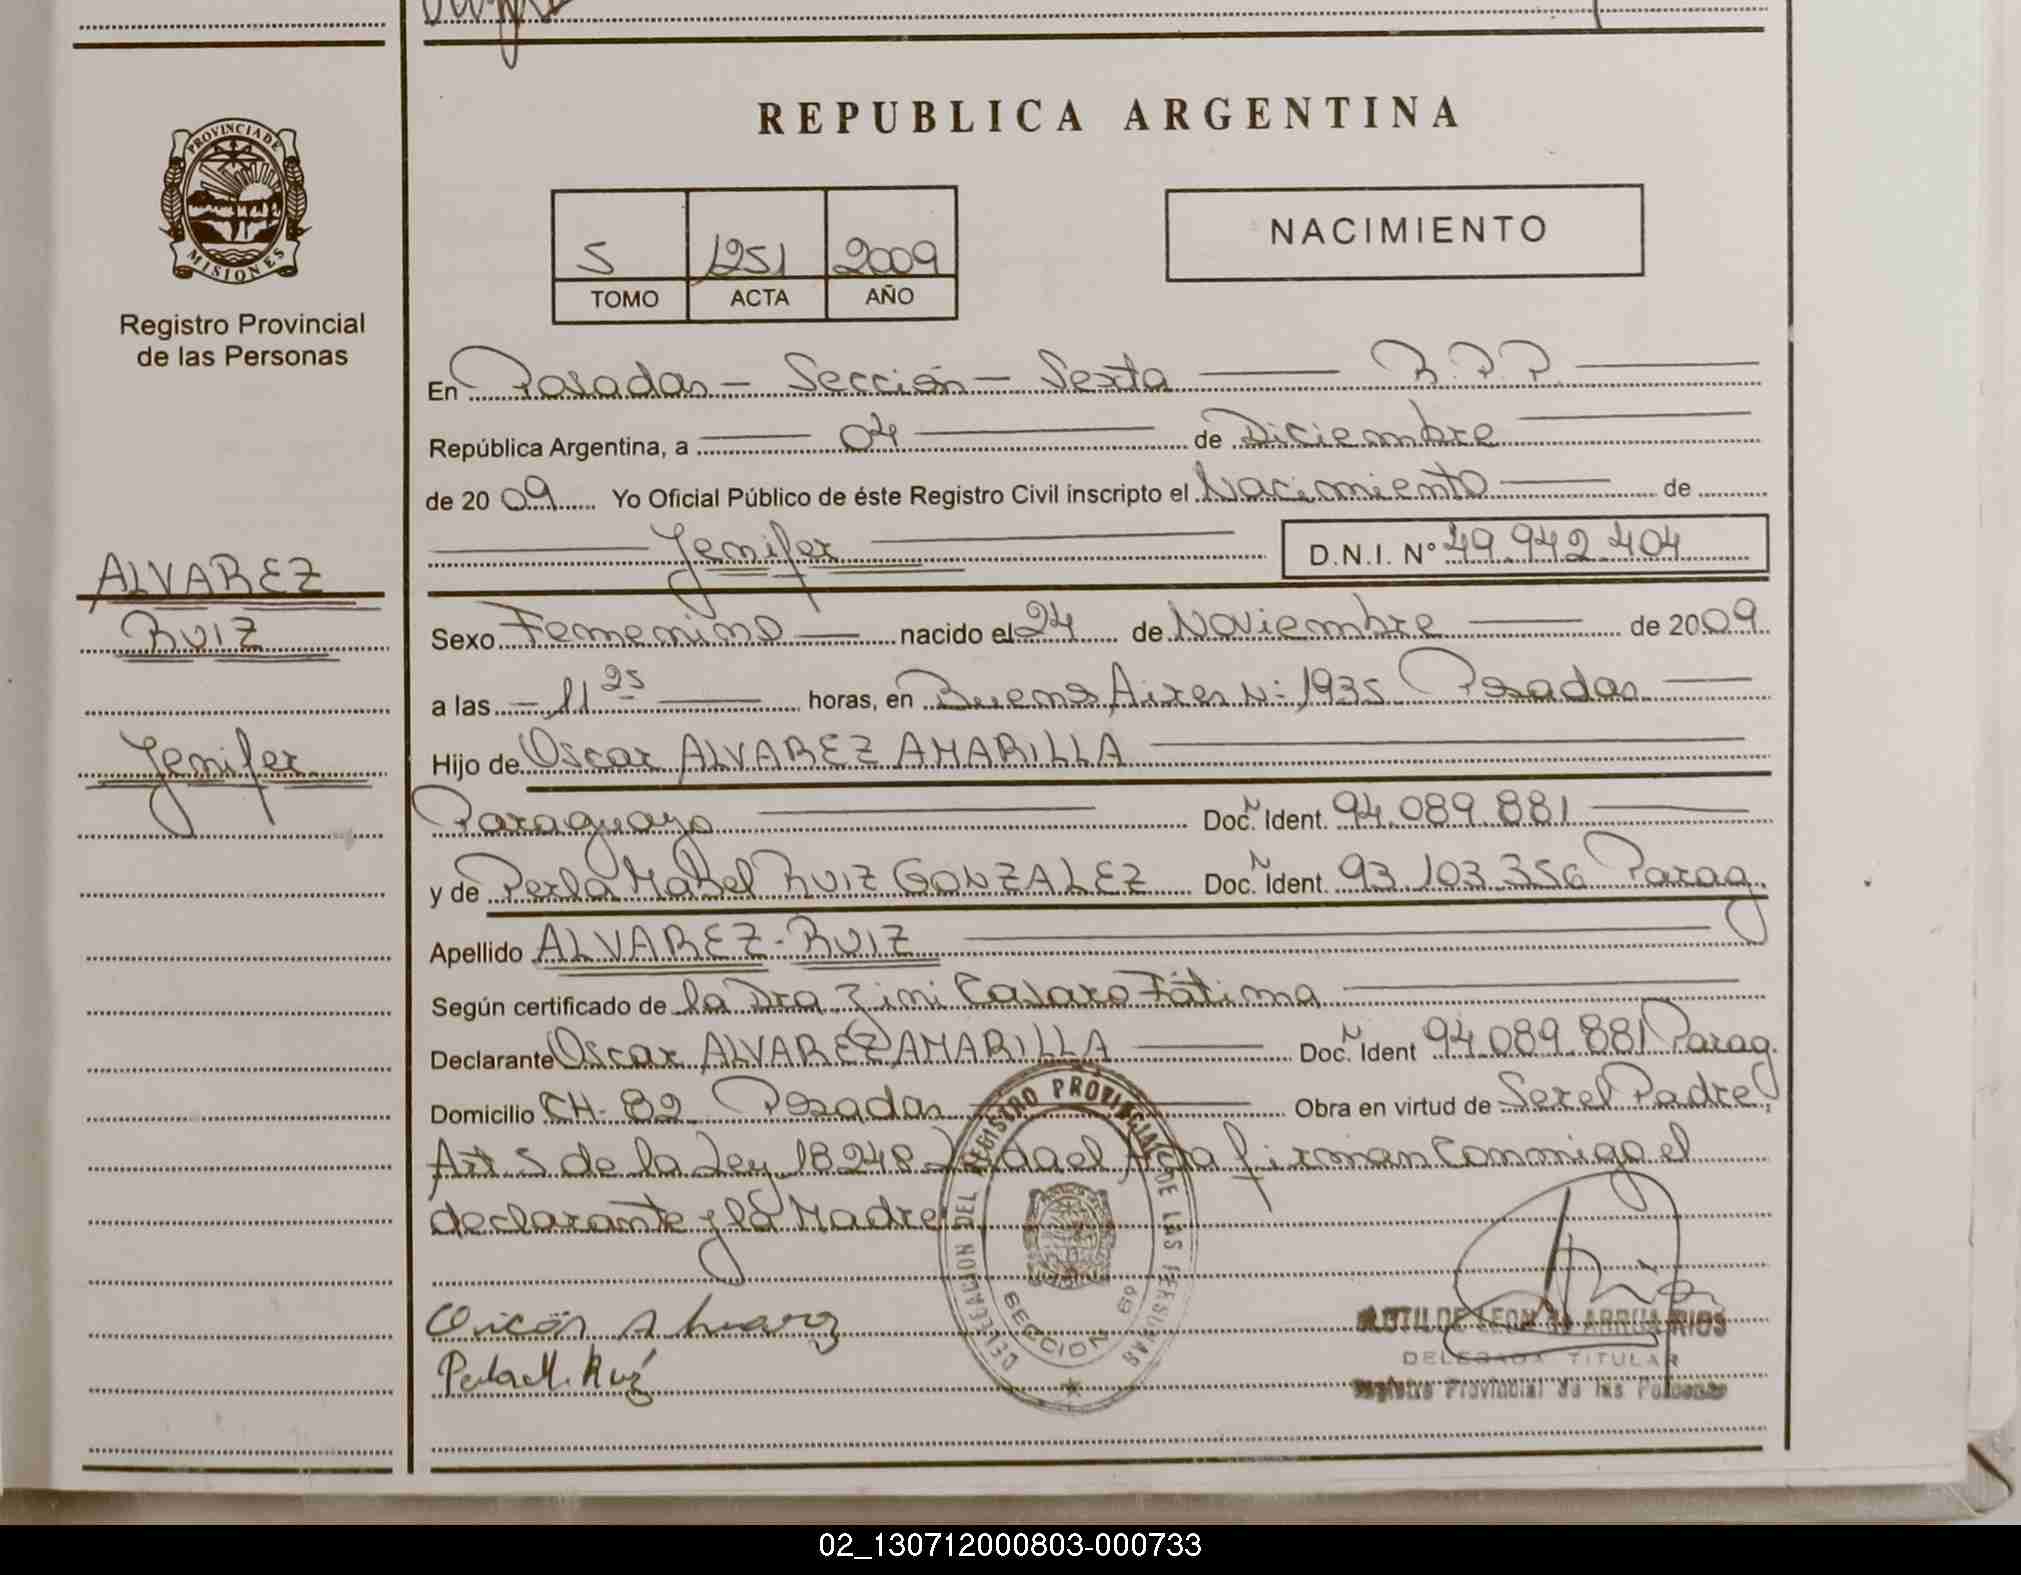 REPUBLICA ARGENTINA
PROVINCIA DE
MISIONES
Registro Provincial
de las Personas
5 1251 2009
TOMO ACTA AÑO
NACIMIENTO
En Posadas - Sección - Sexta R.P.P.
República Argentina, a 04 de Diciembre
de 2009 Yo Oficial Público de éste Registro Civil inscripto el Nacimiento de
Jenifer D.N.I. Nº 49.942.404
ALVAREZ
RUIZ
Jenifer
Sexo Femenino nacido el 24 de Noviembre de 2009
a las - 11 25 horas, en Buenos Aires Nº 1935 Posadas
Hijo de Oscar ALVAREZ AMARILLA
Paraguayo Doc. Ident. 94.089.881
y de Perla Mabel RUIZ GONZALEZ Doc. Ident. 93.103.356 Parag.
Apellido ALVAREZ - RUIZ
Según certificado de la Dra Zini Casaro Fátima
Declarante Oscar ALVAREZ AMARILLA Doc. Ident 94.089.881 Parag.
Domicilio CH- 82 Posadas Obra en virtud de Ser el Padre,
Art 5 de la Ley 18248 Leida el Acta firman Conmigo el
declarante y la Madre
DELEGACION DEL REGISTRO PROVINCIAL DE LAS PERSONAS
SECCION 6º
Perla M. Ruiz
DELEGADA TITULAR
Registro Provincial de las Personas
02_130712000803-000733